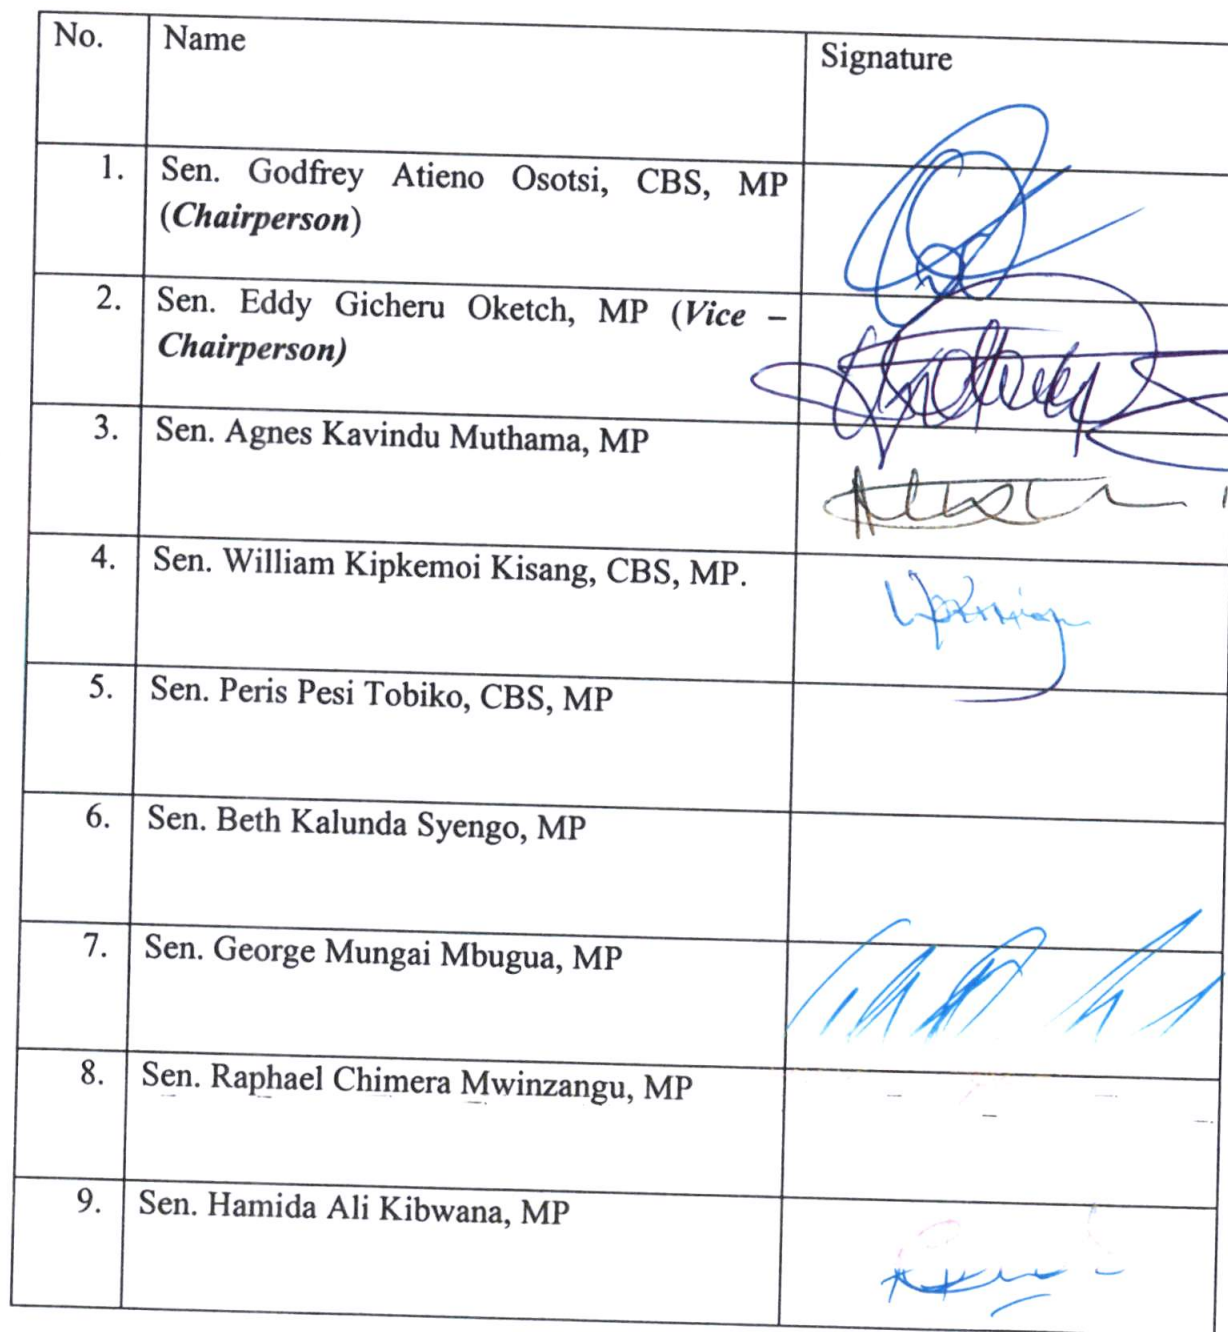 No. Name Signature
1. Sen. Godfrey Atieno Osotsi, CBS, MP
(Chairperson)
2. Sen. Eddy Gicheru Oketch, MP (Vice –
Chairperson)
3. Sen. Agnes Kavindu Muthama, MP
4. Sen. William Kipkemoi Kisang, CBS, MP.
5. Sen. Peris Pesi Tobiko, CBS, MP
6. Sen. Beth Kalunda Syengo, MP
7. Sen. George Mungai Mbugua, MP
8. Sen. Raphael Chimera Mwinzangu, MP
9. Sen. Hamida Ali Kibwana, MP